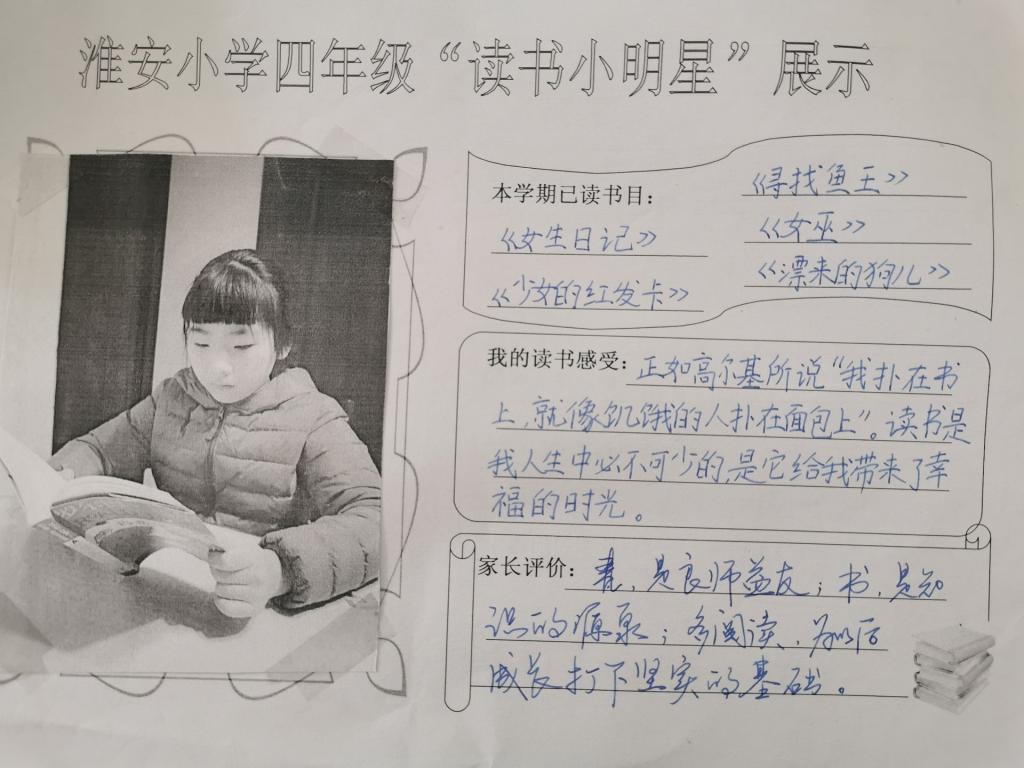 淮安小学四年级“读书小明星”展示
本学期已读书目：
《女生日记》
《少女的红发卡》
《寻找鱼王》
《女巫》
《漂来的狗儿》
我的读书感受：正如高尔基所说“我扑在书
上，就像饥饿的人扑在面包上”。读书是
我人生中必不可少的，是它给我带来了幸
福的时光。
家长评价：书，是良师益友；书，是知
识的源泉；多阅读、为以后
成长打下坚实的基础。